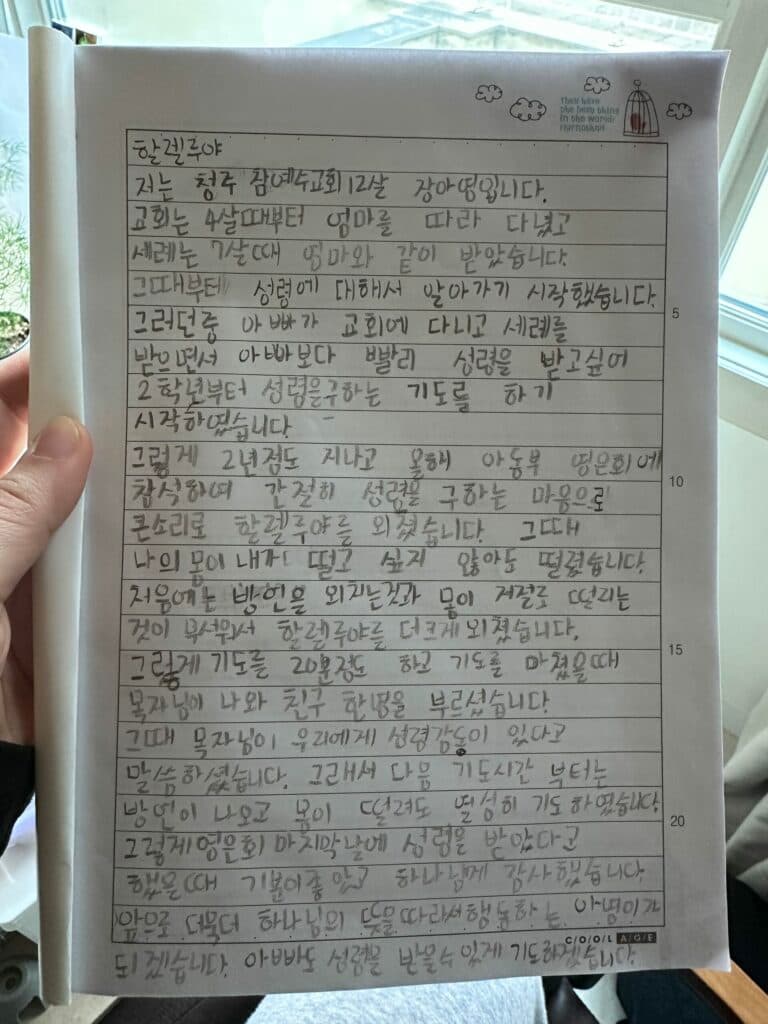 They have
the best thing
in the world.
할렐루야
저는 청주 참예수교회 12살 장아영입니다.
교회는 4살때부터 엄마를 따라 다녔고
세례는 7살때 엄마와 같이 받았습니다.
그때부터 성령에 대해서 알아가기 시작했습니다.
그러던중 아빠가 교회에 다니고 세례를
받으면서 아빠보다 빨리 성령을 받고싶어
2학년부터 성령을구하는 기도를 하기
시작하였습니다.
그렇게 2년점도 지나고 올해 아동부 영은회에
참석하여 간절히 성령을 구하는 마음으로
큰소리로 할렐루야를 외쳤습니다. 그때
나의 몸이 내가 떨고 싶지 않아도 떨렸습니다.
처음에는 방언을 외치는것과 몸이 저절로 떨리는
것이 무서워서 할렐루야를 더크게 외쳤습니다.
그렇게 기도를 20분정도 하고 기도를 마쳤을때
목자님이 나와 친구 한명을 부르셨습니다.
그때 목자님이 우리에게 성령감동이 있다고
말씀하셨습니다. 그래서 다음 기도시간 부터는
방언이 나오고 몸이 떨려도 열성히 기도하였습니다.
그렇게영은회 마지막날에 성령을 받았다고
했을때 기분이좋았고 하나님께 감사했습니다.
앞으로 더욱더 하나님의 뜻을따라서행동하는 아영이가
되겠습니다. 아빠도 성령을 받을수 있게 기도하겠습니다.
5
10
15
20
COOL AGE